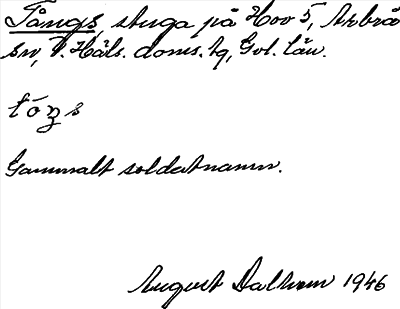 Tångs, stuga på Hov 5, Arbrå
sn, V. Häls. doms. tg, Gvl. län.
tóŋs
Gammalt soldatnamn.
August Dalhem 1946